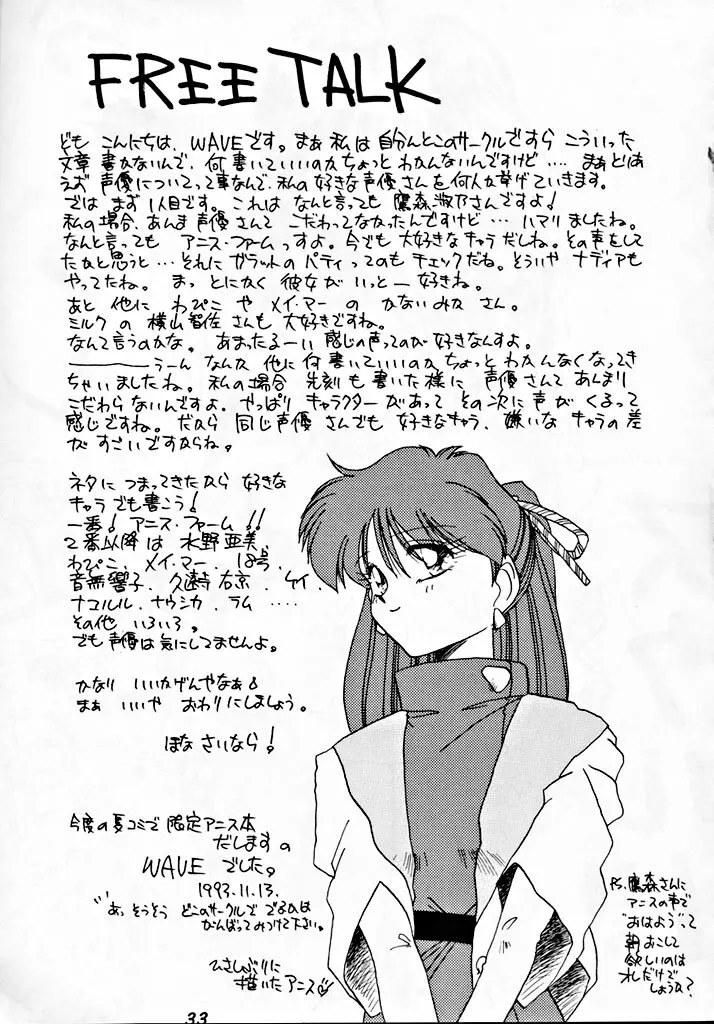 FREE TALK
ども こんにちは、WAVEです。まぁ 私は 自分んとこのサークルですら こういった
文章 書かないんで、何 書いていいのか ちょっと わかんないんですけど ‥‥ まぁ とりあ
えず 声優についてって事なんで、私の 好きな 声優さんを 何人か 挙げていきます。
では まず 1人目です。これは なんと言っても 鷹森淑乃さんですよ!
私の 場合、あんま 声優さんて こだわってなかったんですけど … ハマリましたね。
なんと言っても アニス・ファームっすよ。今でも 大好きな キャラだしね。その声をして
たかと思うと … それに ガラットの パティってのも チェックだね。そういや ナディアも
やってたね。 まっ とにかく 彼女が いっとー 好きね。
あと 他に わぴこ や メイ・マー の かないみか さん。
ミルク の 横山智佐 さんも 大好きですね。
なんて言うのかな。 あまったるーい 感じの声ってのが 好きなんすよ。
――――うーん なんか 他に何 書いていいのか ちょっと わかんなくなってき
ちゃいましたね。 私の場合 先刻 も 書いた様に 声優さんて あんまり
こだわらないんですよ。やっぱり キャラクターが あって その次に 声が くるって
感じですね。だから 同じ声優 さんでも 好きなキャラ、嫌いな キャラの差
が すごいですからね。
ネタに つまってきたから 好きな
キャラ でも書こう!
一番! アニス・ファーム!!
2番以降 は 水野 亜美、
わぴこ、メイ・マー、18号、
音無響子、久遠寺 右京、ケイ、
ナコルル、ナウシカ、ラム ‥‥
その他 いろいろ。
でも 声優は 気にしてませんよ。
かなり いいかげんやなぁ
まぁ いいや おわりにしましょう。
ほな さいなら!
今度の夏コミで 限定アニス本
だしますの
WAVE でした。
1993.11.13.
あ、そうそう どこのサークルで でるかは
がんばってみつけて下さい。
ひさしぶりに
描いたアニス♡
PS.鷹森さんに
アニスの声で
"おはよう"って
朝 おこして
欲しいのは
オレだけで
しょうか?
33